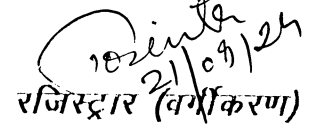 21/08/24
रजिस्ट्रार (वर्गीकरण)